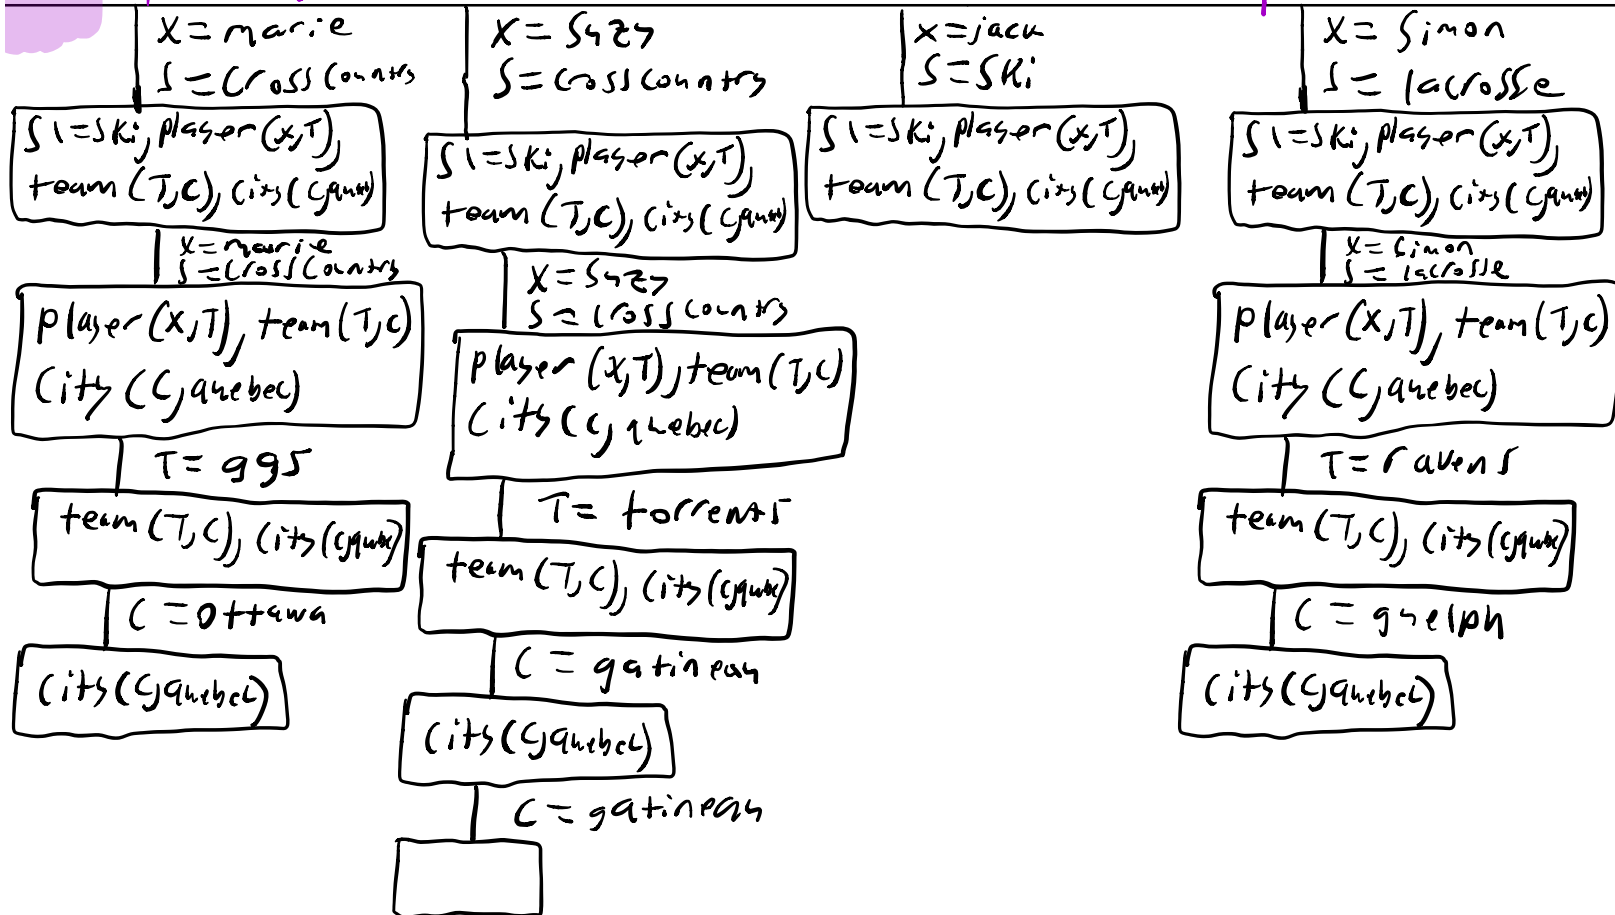 X = marie
S = Cross Country
S \= Ski, player (X,T),
team (T,C), City (C,
X = marie
S = Cross Country
player (X,T), team (T,C)
City (C, quebec)
T = ggs
team (T,C), City (C,
C = Ottawa
City (C, quebec)
X = Suzy
S = Cross Country
S \= Ski, player (X,T),
team (T,C), City (C,
X = Suzy
S = Cross Country
player (X,T), team (T,C)
City (C, quebec)
T = torrents
team (T,C), City (C,
C = gatineau
City (C, quebec)
C = gatineau
X = jack
S = Ski
S \= Ski, player (X,T),
team (T,C), City (C,
X = Simon
S = lacrosse
S \= Ski, player (X,T),
team (T,C), City (C,
X = Simon
S = lacrosse
player (X,T), team (T,C)
City (C, quebec)
T = ravens
team (T,C), City (C,
C = guelph
City (C, quebec)